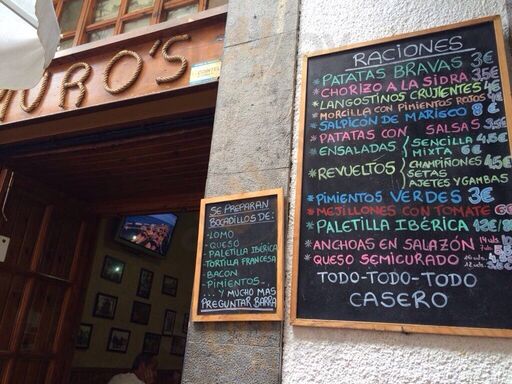 URO'S
RACIONES
* PATATAS BRAVAS 3€
* CHORIZO A LA SIDRA 3,5€
* LANGOSTINOS CRUJIENTES 4€
* MORCILLA CON PIMIENTOS ROJOS 4€
* SALPICÓN DE MARISCO 8€
* PATATAS CON SALSAS 3,5€
* ENSALADAS SENCILLA 4,5€
MIXTA 6€
* REVUELTOS CHAMPIÑONES 4,5€
SETAS
AJETES Y GAMBAS
* PIMIENTOS VERDES 3€
* MEJILLONES CON TOMATE
* PALETILLA IBÉRICA 12€/8€
* ANCHOAS EN SALAZÓN 14 uds
7 uds
* QUESO SEMICURADO
TODO-TODO-TODO
CASERO
SE PREPARAN
BOCADILLOS DE:
- LOMO
- QUESO
- PALETILLA IBÉRICA
TORTILLA FRANCESA
- BACON
- PIMIENTOS...
... Y MUCHO MAS
PREGUNTAR BARRA